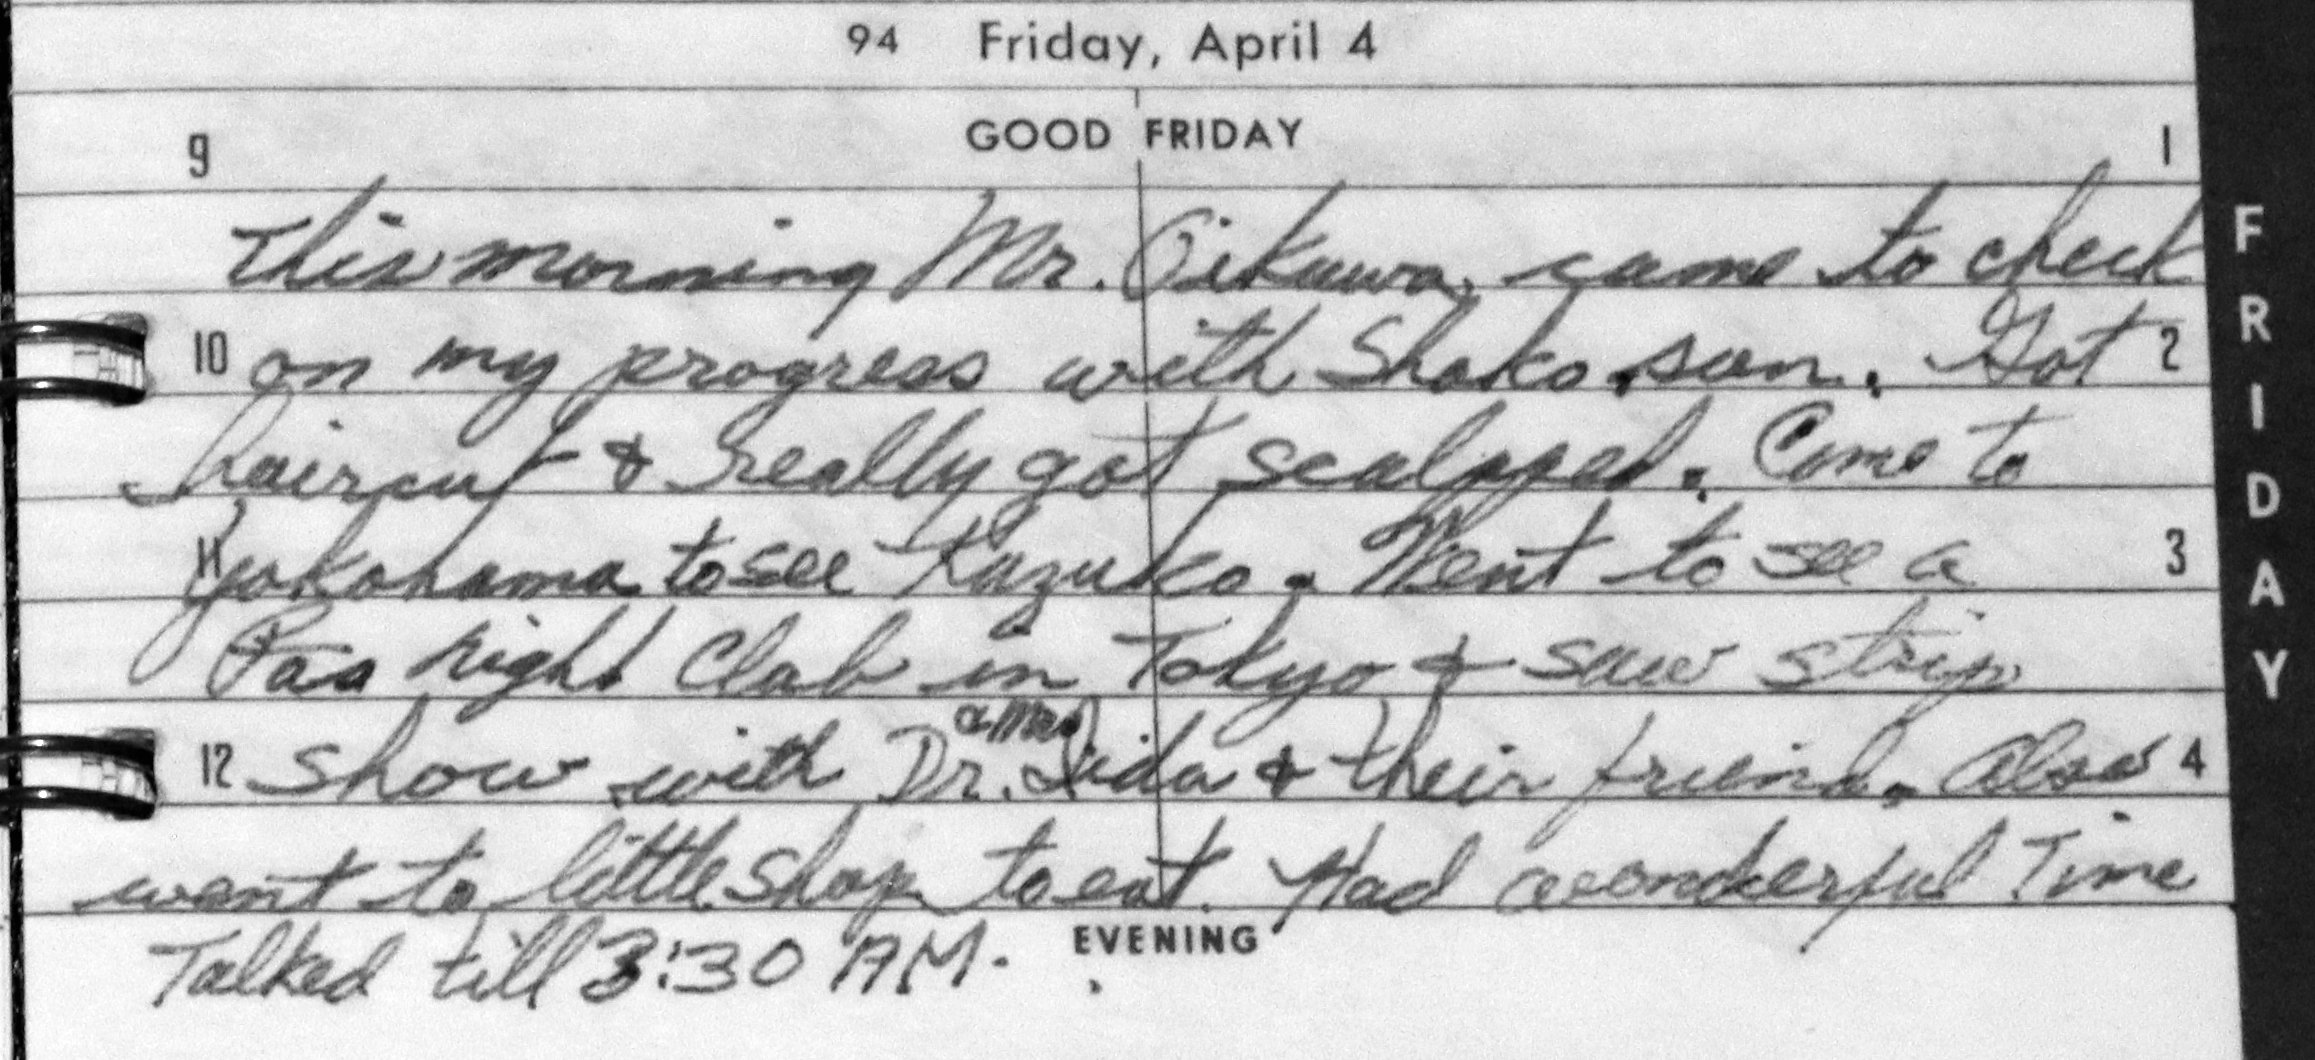 94 Friday, April 4
GOOD FRIDAY
9 1
This morning Mr. Oikawa came to check
10 on my progress with Shoko san. Got 2
haircut & really got scalped. Came to
11 Yokohama to see Kazuko. Went to see a 3
night Club in Tokyo & saw strip
12 show with Dr. & Mrs. Iida & their friend. Also 4
went to little shop to eat. Had wonderful Time
Talked till 3:30 AM.
EVENING
FRIDAY